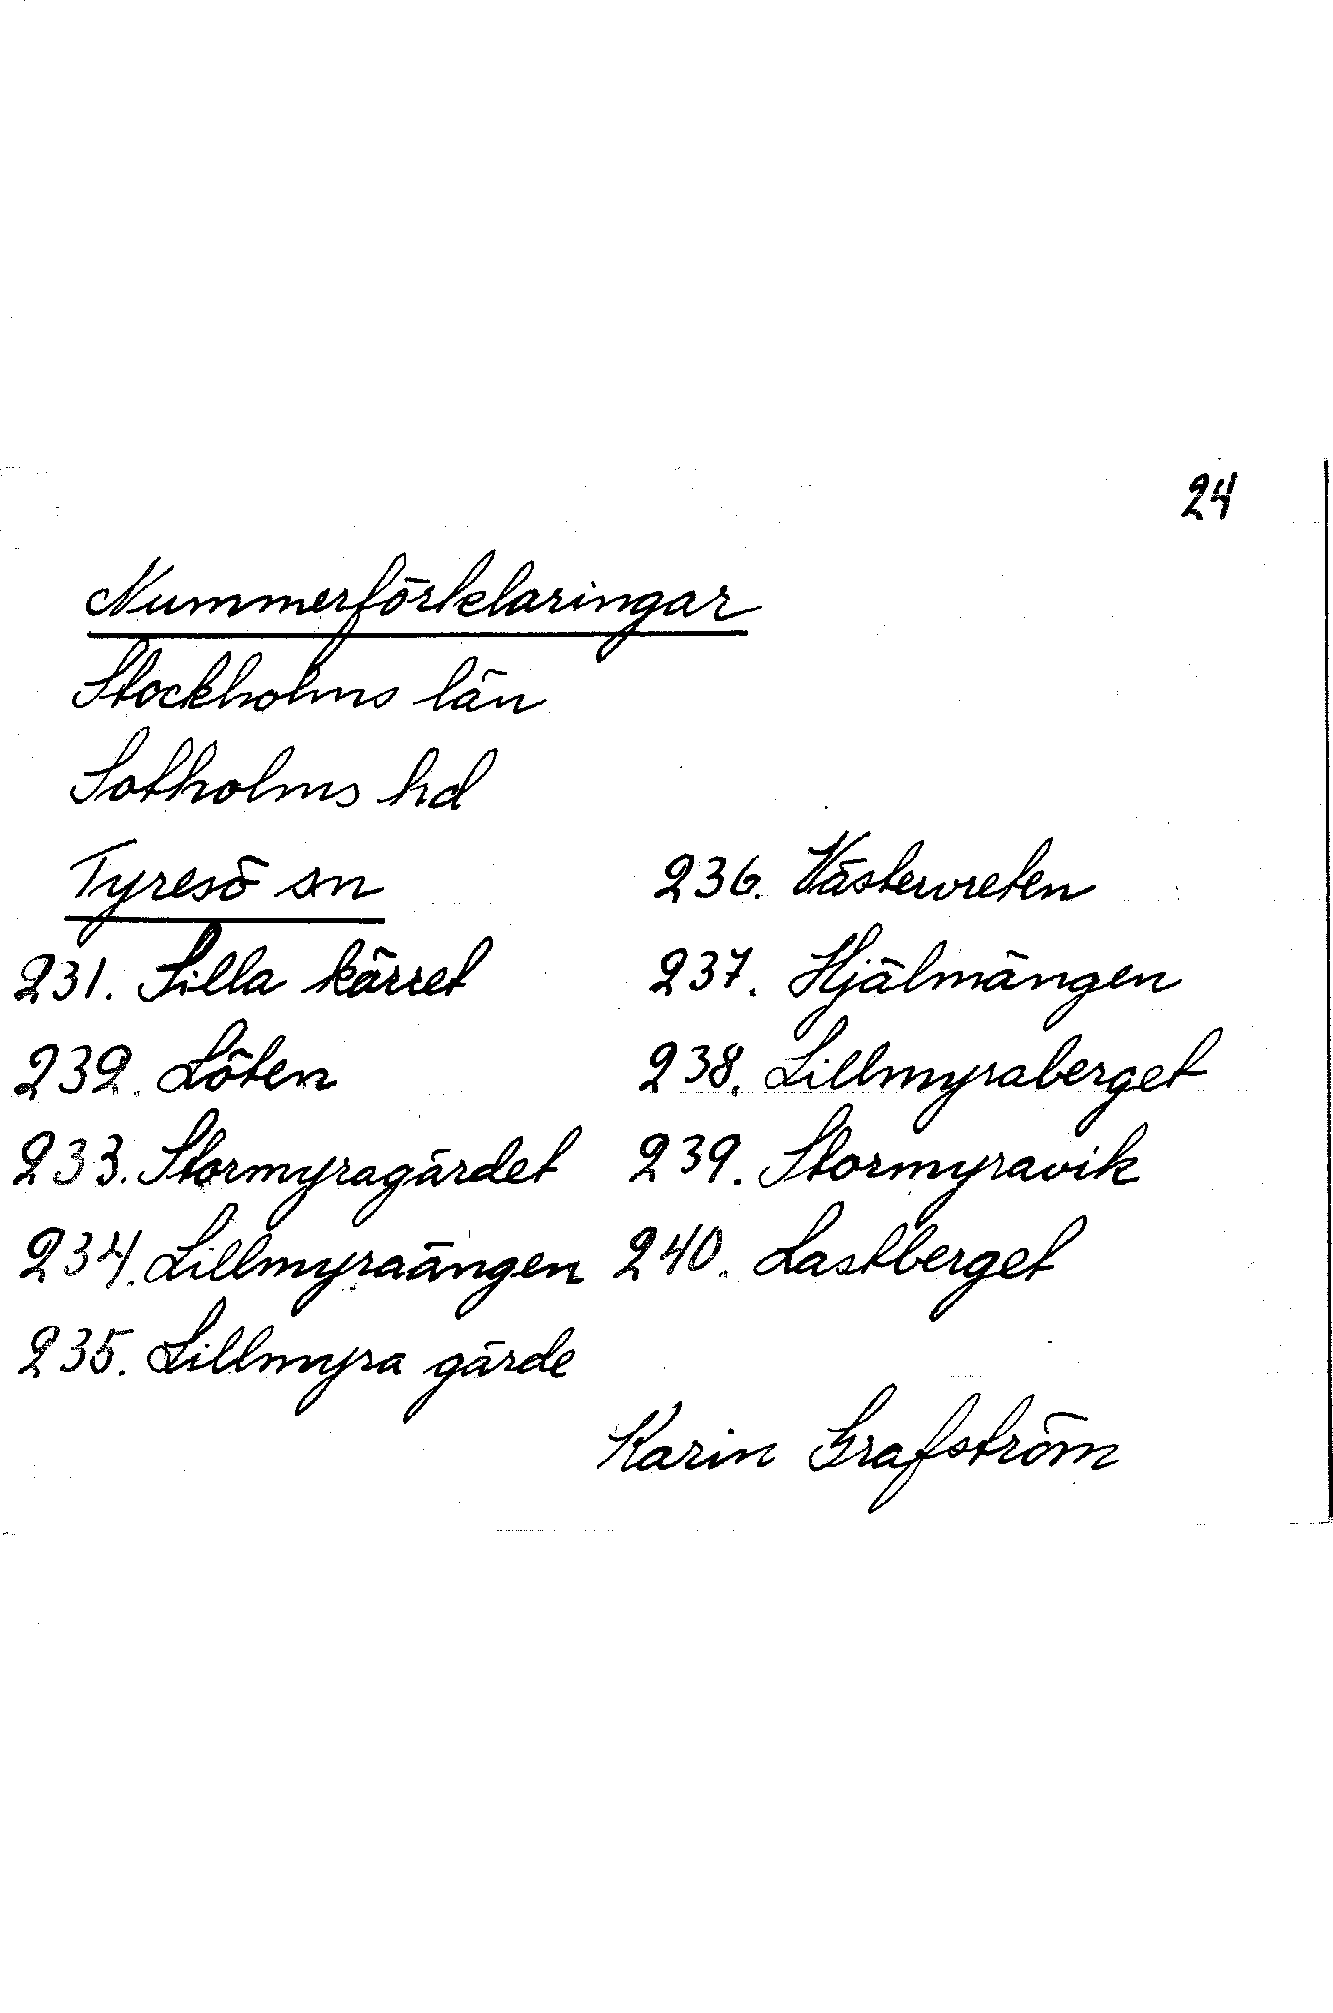 24
Nummerförklaringar
Stockholms län
Sotholms hd
Tyresö sn
231. Lilla kärret
232. Löten
233. Stormyragärdet
234. Lillmyraängen
235. Lillmyra gärde
236. Västervreten
237. Hjälmängen
238. Lillmyraberget
239. Stormyravik
240. Lastberget
Karin Grafström